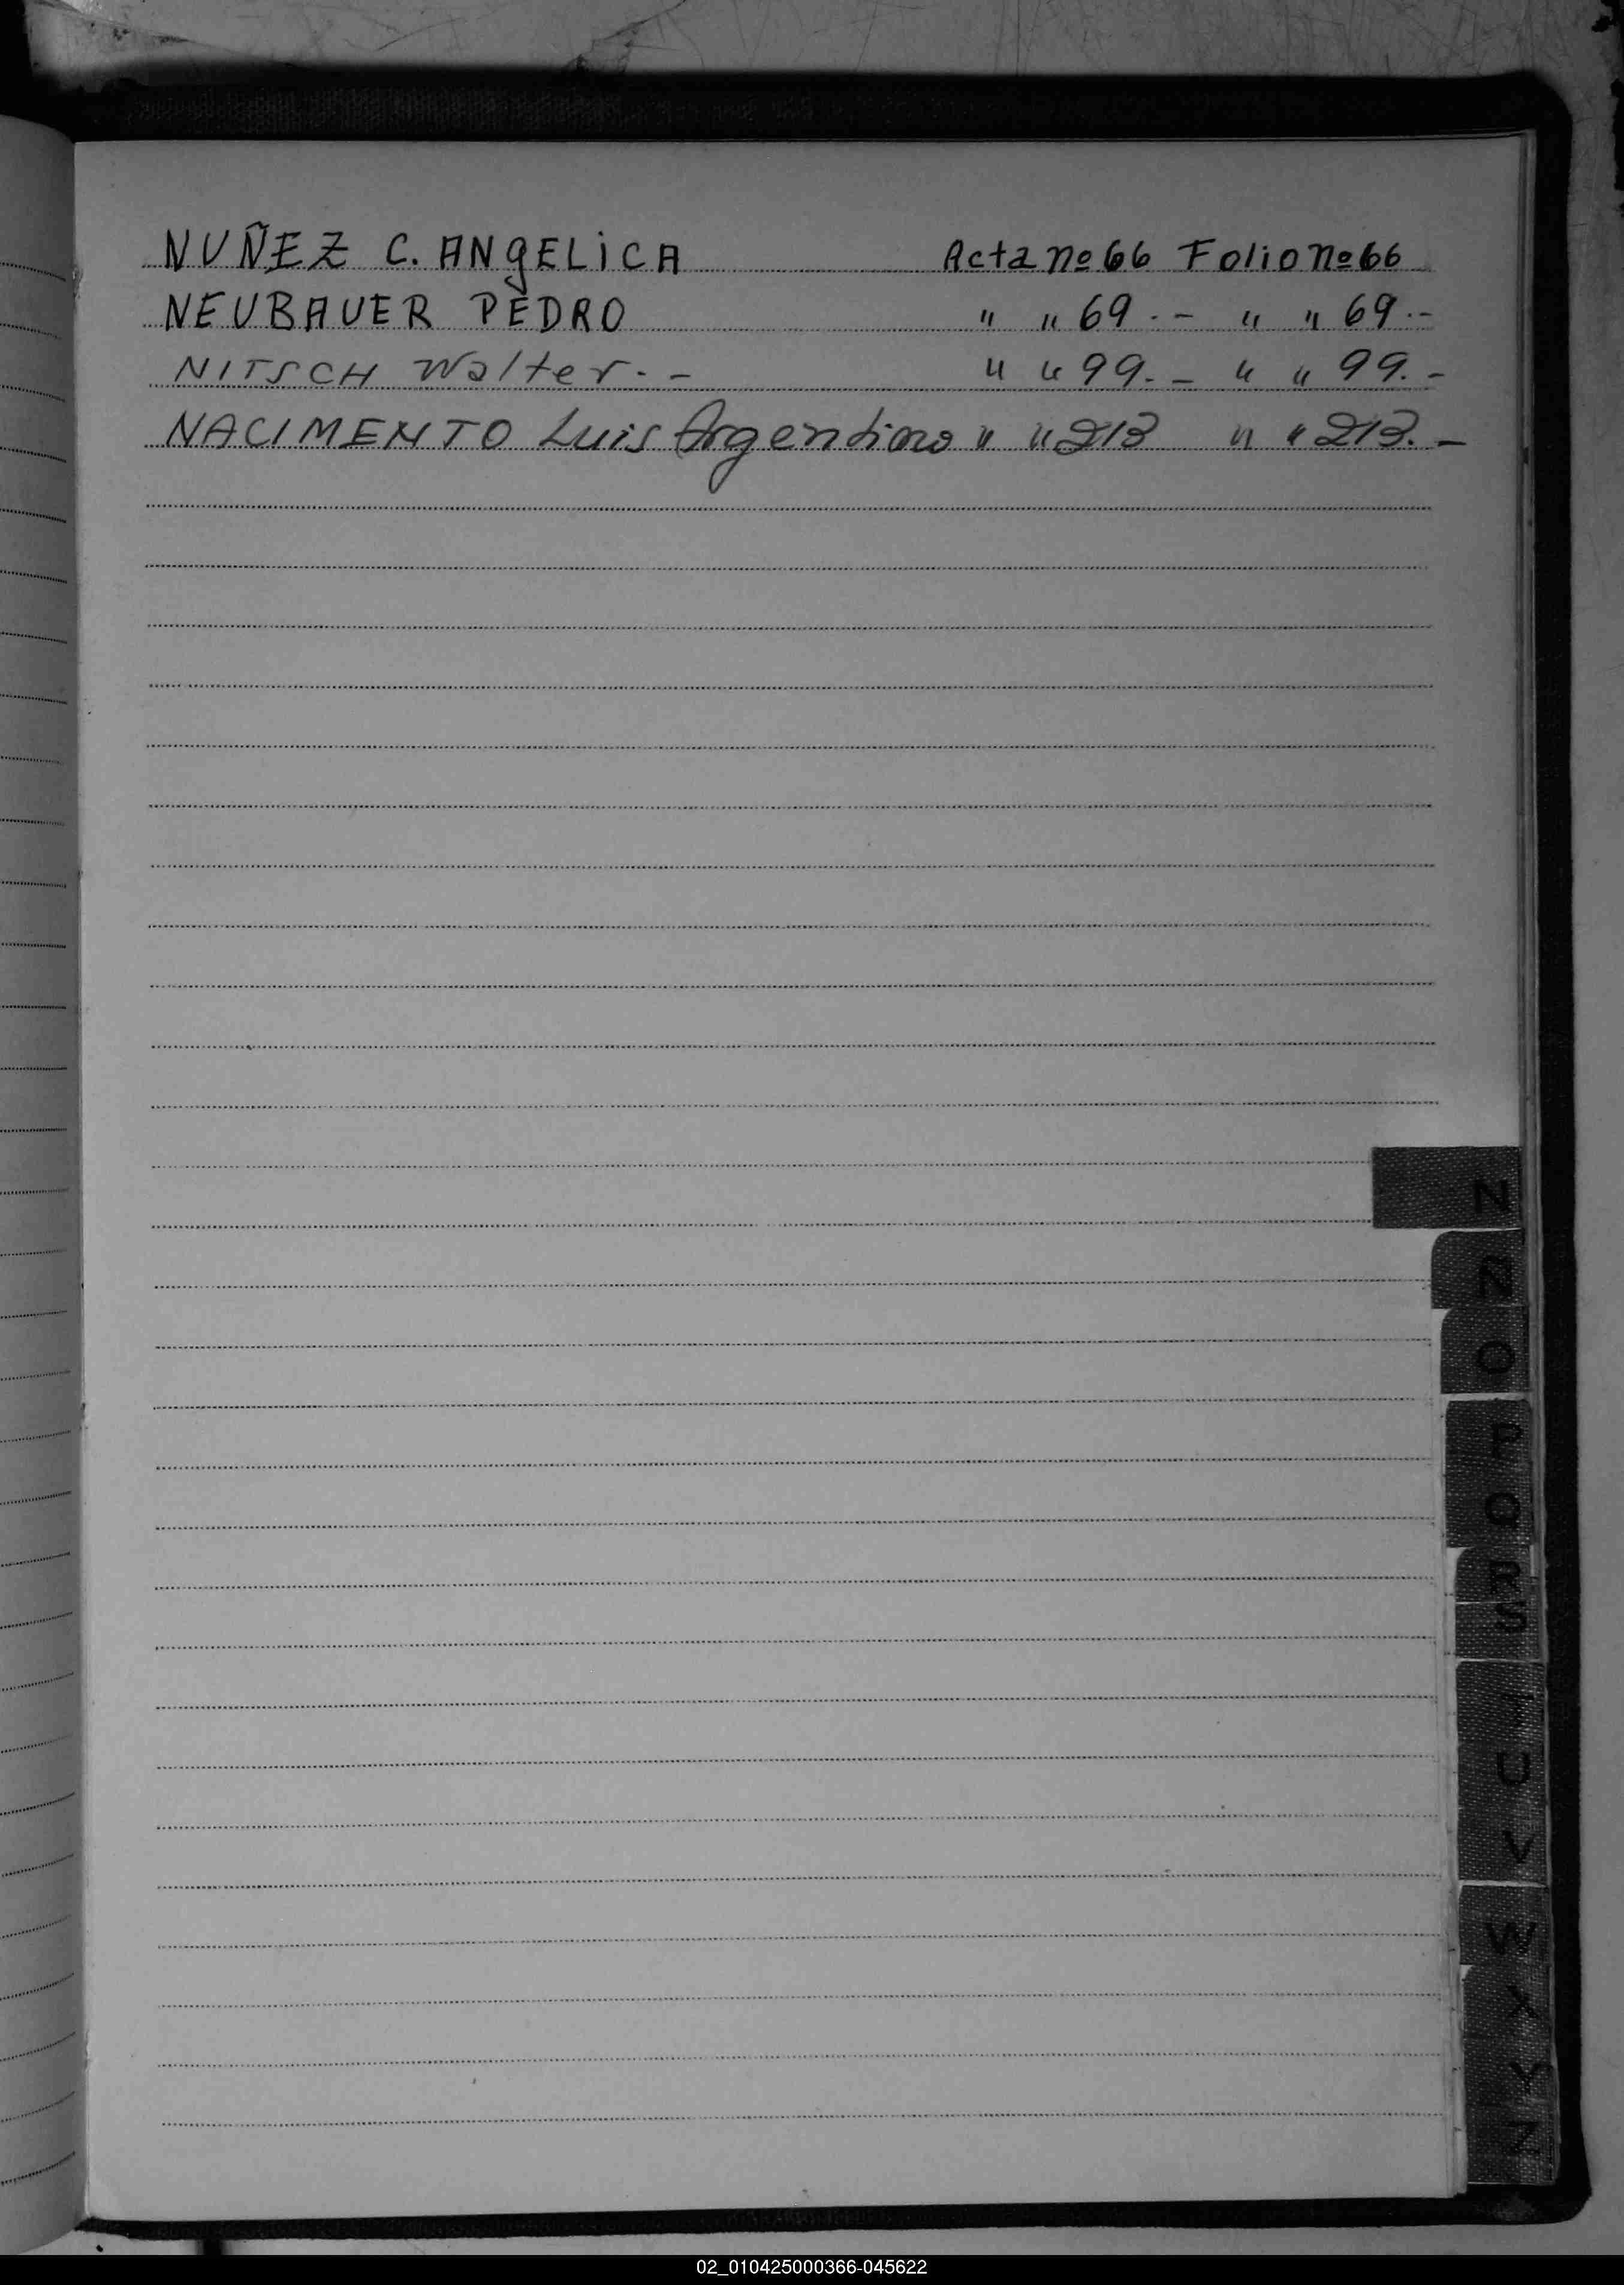 NUÑEZ C. ANgELiCA Acta nº 66 Folio nº 66
NEUBAUER PEDRO " " 69.- " " 69.-
NITSCH Walter.- " " 99.- " " 99.-
NACIMENTO Luis Argentino " " 213 " " 213.-
N
Ñ
O
P
Q
R
S
T
U
V
W
X
Y
Z
02_010425000366-045622